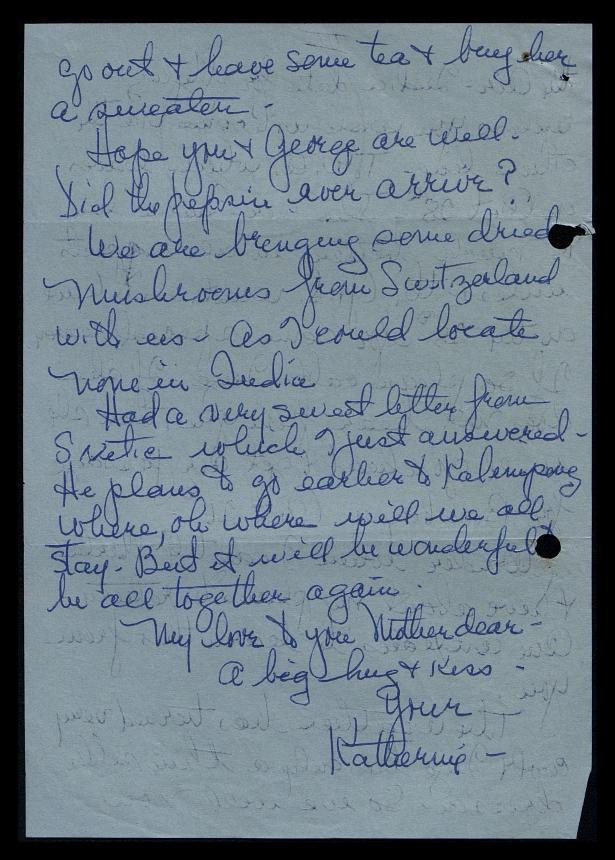 go out + have some tea + buy her
a sweater -
Hope you + George are well.
Did the pepsin ever arrive?
We are bringing some dried
mushrooms from Switzerland
with us - as I could locate
none in India
Had a very sweet letter from
Svetie which I just answered -
He plans to go earlier to Kalempong
where, oh where will we all
stay. But it will be wonderful to
be all together again.
My love to you Mother dear -
a big hug + kiss -
Your
Katherine -